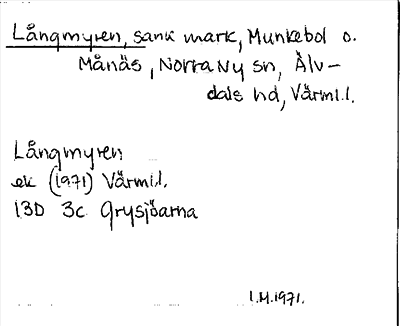 Långmyren, sank mark, Munkebol o.
Månäs, Norra Ny sn, Älv-
dals hd, Värml.l.
Långmyren
ek (1971) Värml.l.
13D 3c Grysjöarna
I.M.1971.